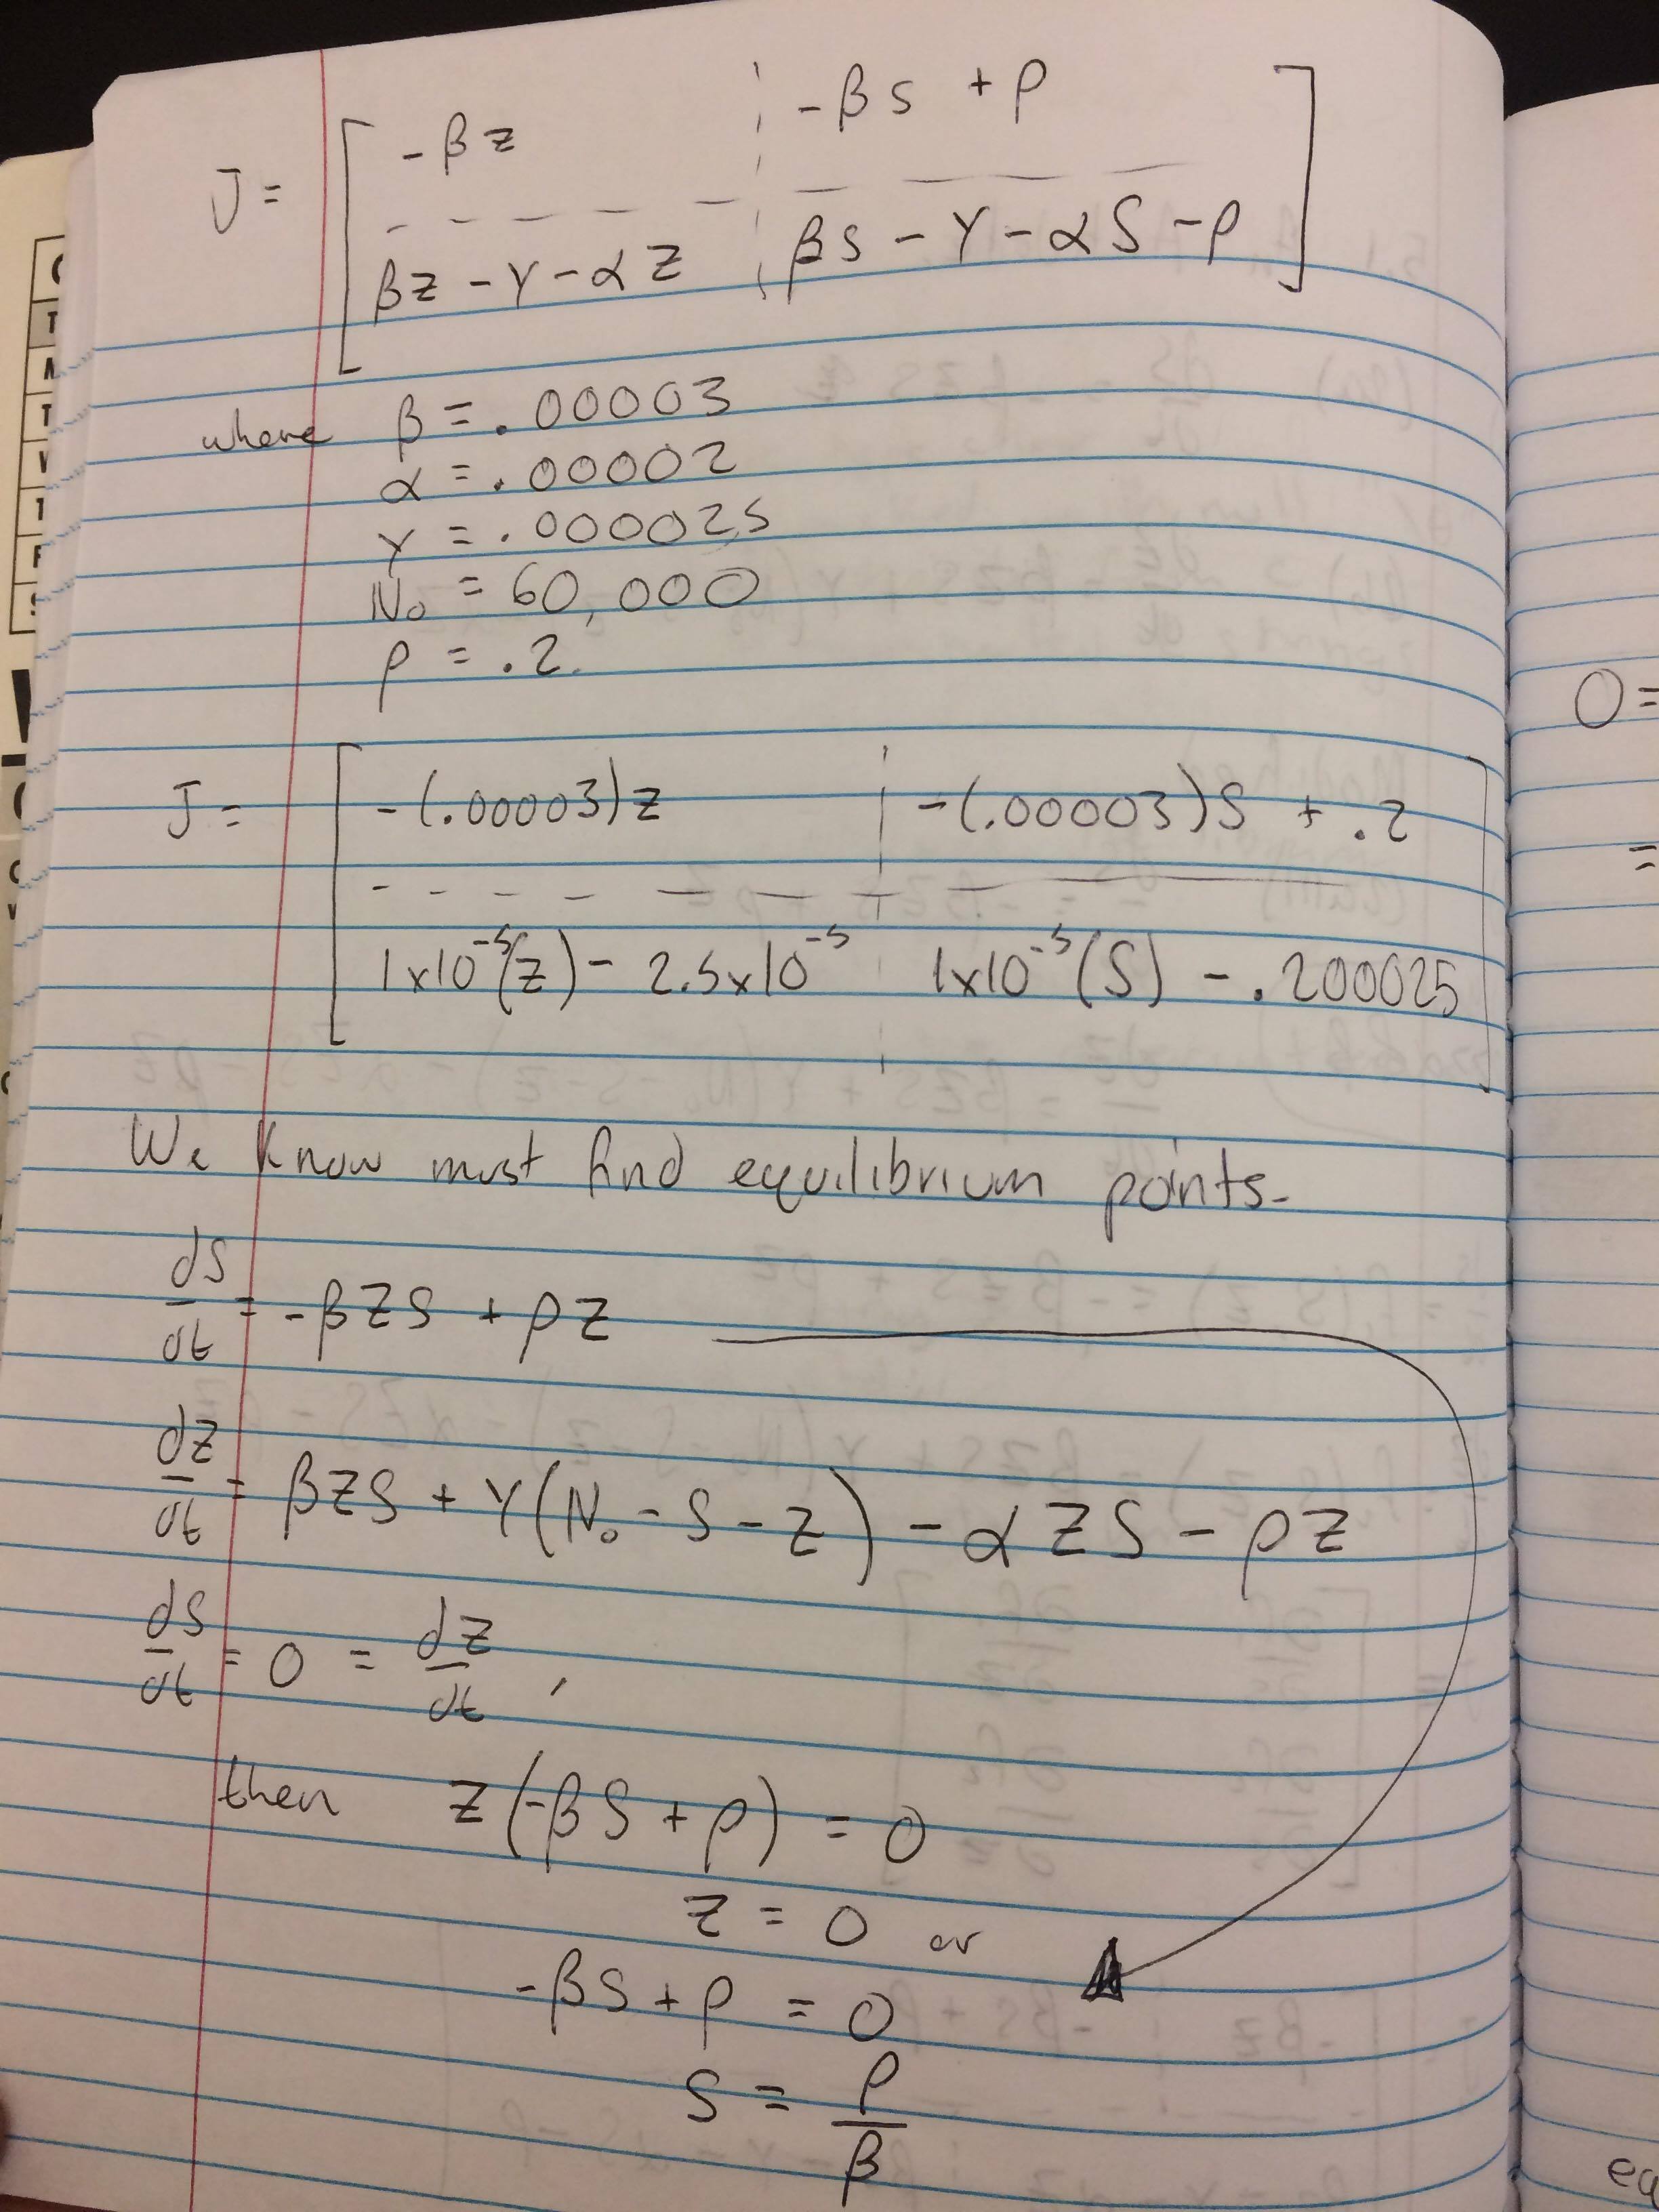 J = [ -βz -βs + ρ
βz - γ - αz βs - γ - αS - ρ ]
where β = .00003
α = .00002
γ = .000025
N₀ = 60,000
ρ = .2
J = [ -(.00003)z -(.00003)S + .2
1x10⁻⁵(z) - 2.5x10⁻⁵ 1x10⁻⁵(S) - .200025 ]
We know must find equilibrium points.
dS/dt = -βZS + ρZ
dz/dt = βZS + γ(N₀ - S - z) - αZS - ρz
dS/dt = 0 = dz/dt ,
then z(-βS + ρ) = 0
z = 0 or
-βS + ρ = 0
S = ρ/β
0 =
=
eq